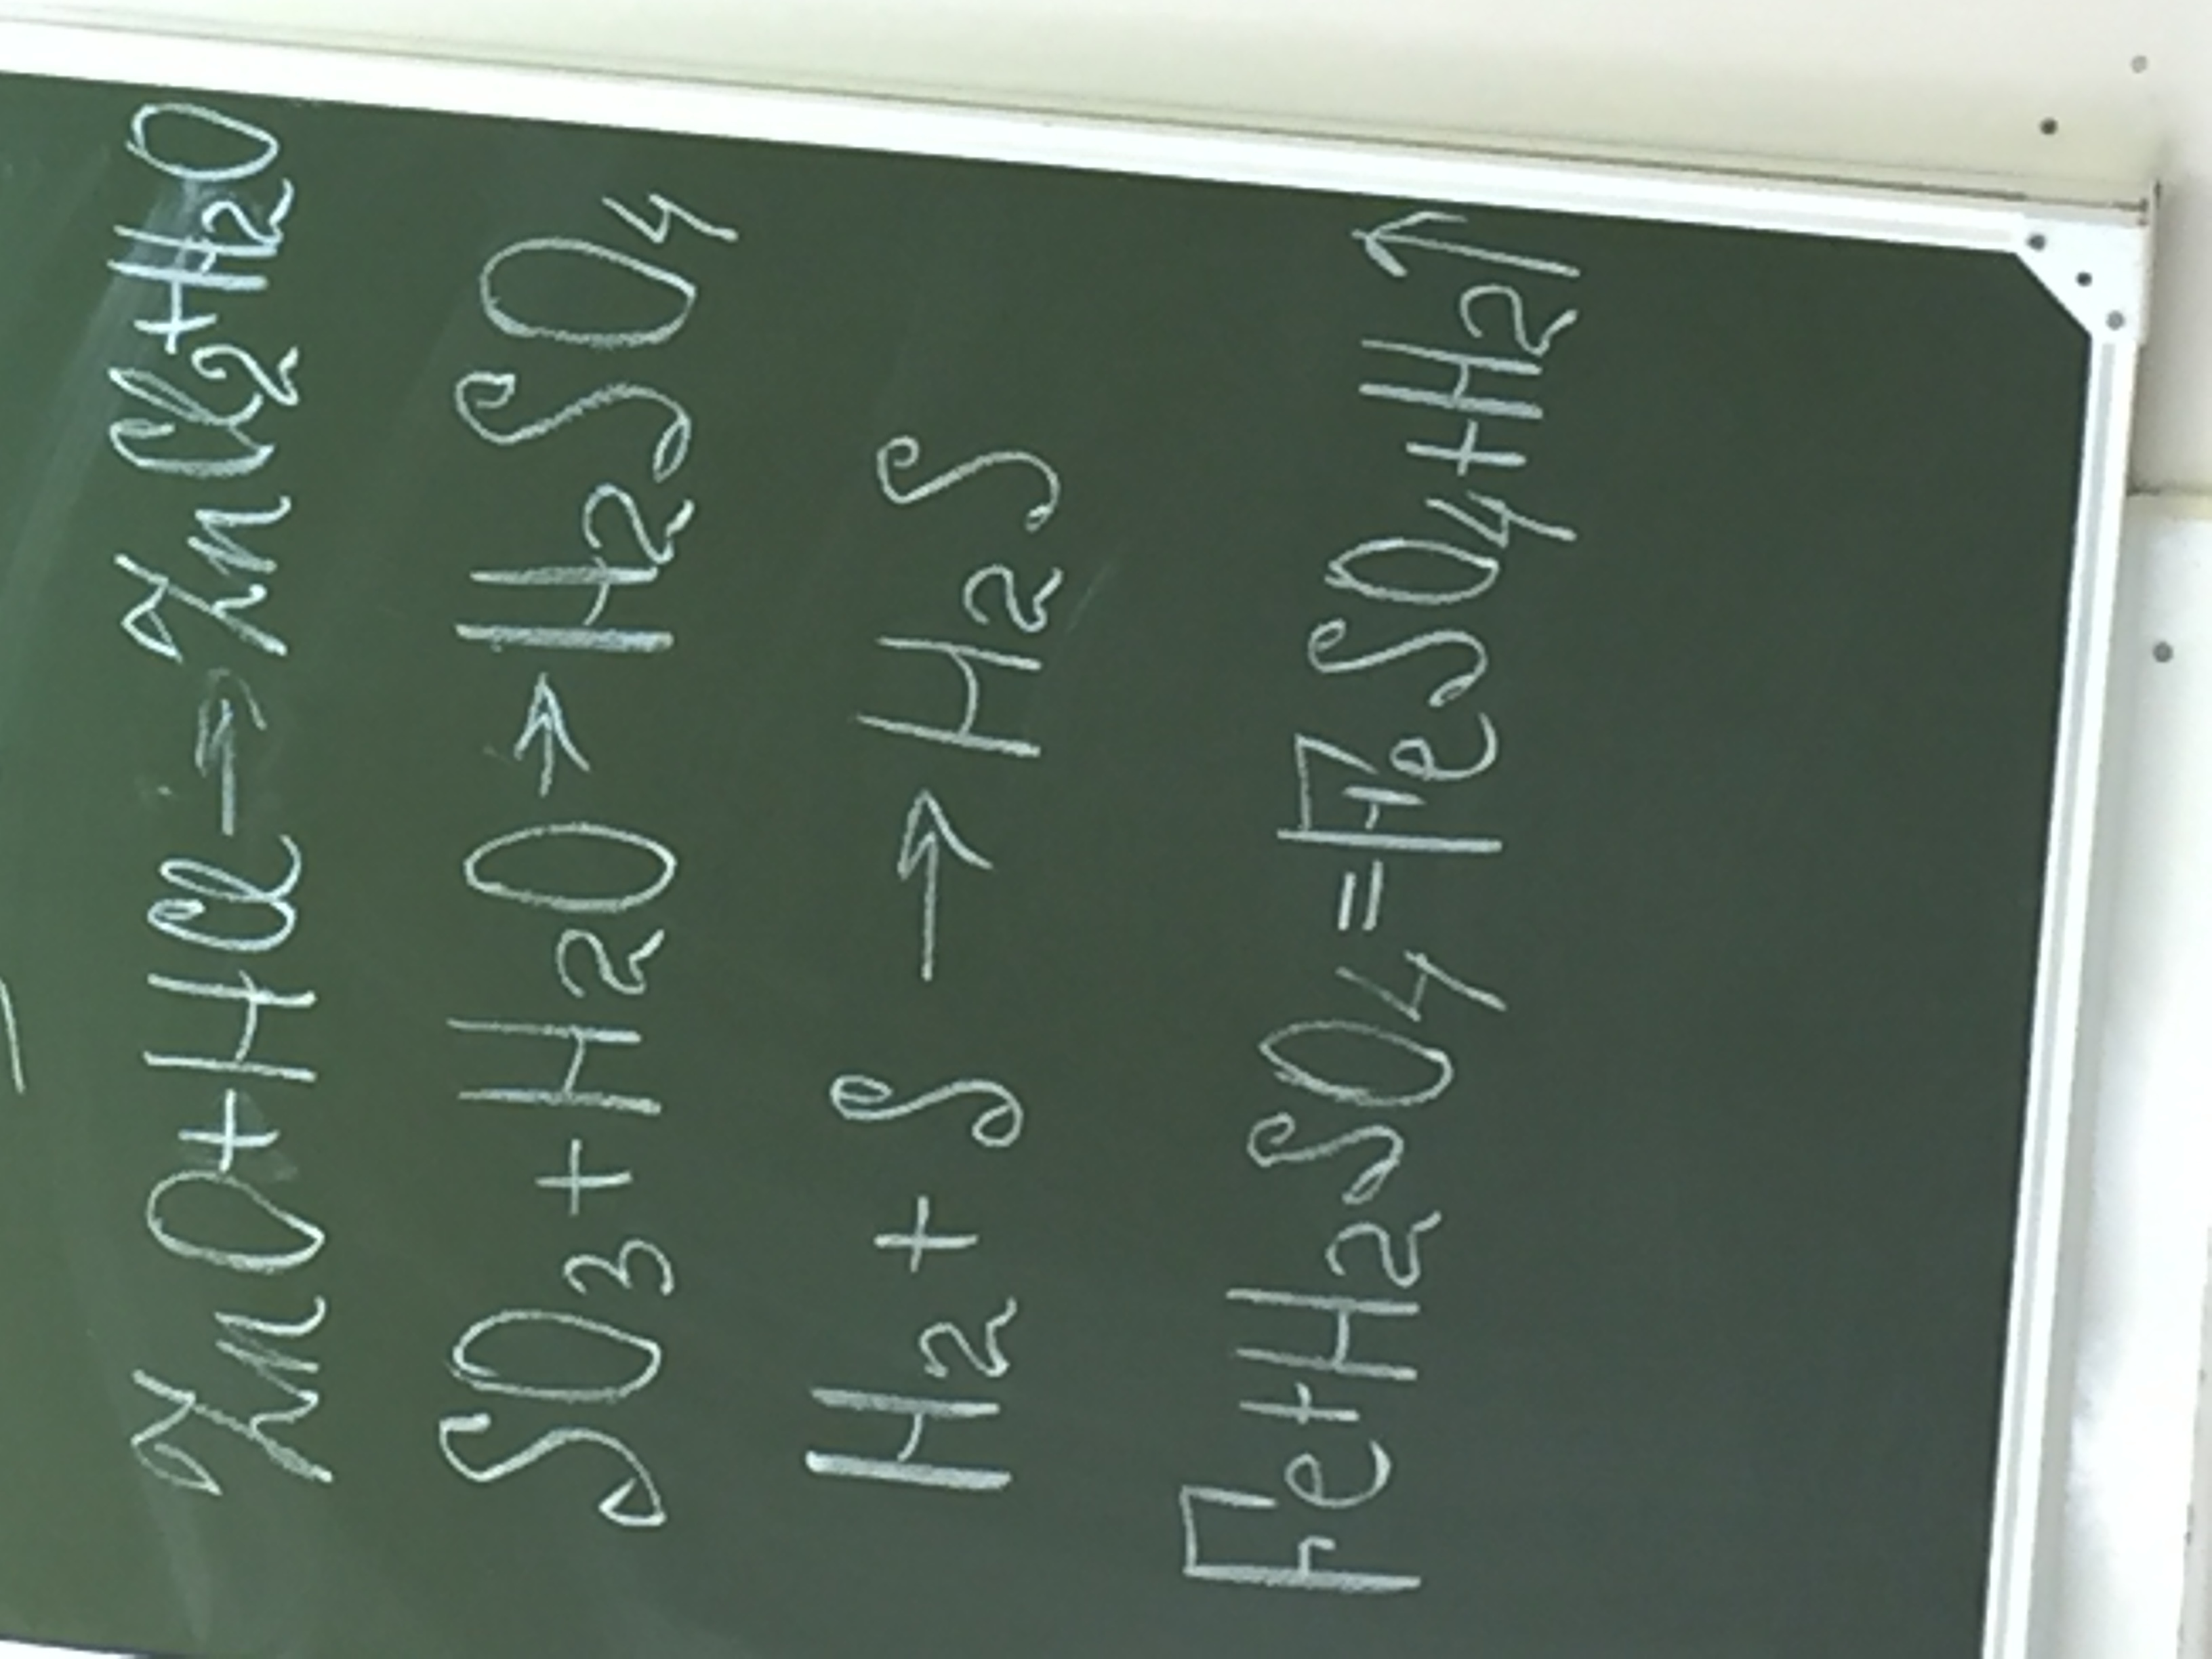 ZnO+HCl→ZnCl₂+H₂O
SO₃+H₂O→H₂SO₄
H₂+S→H₂S
Fe+H₂SO₄=FeSO₄+H₂↑